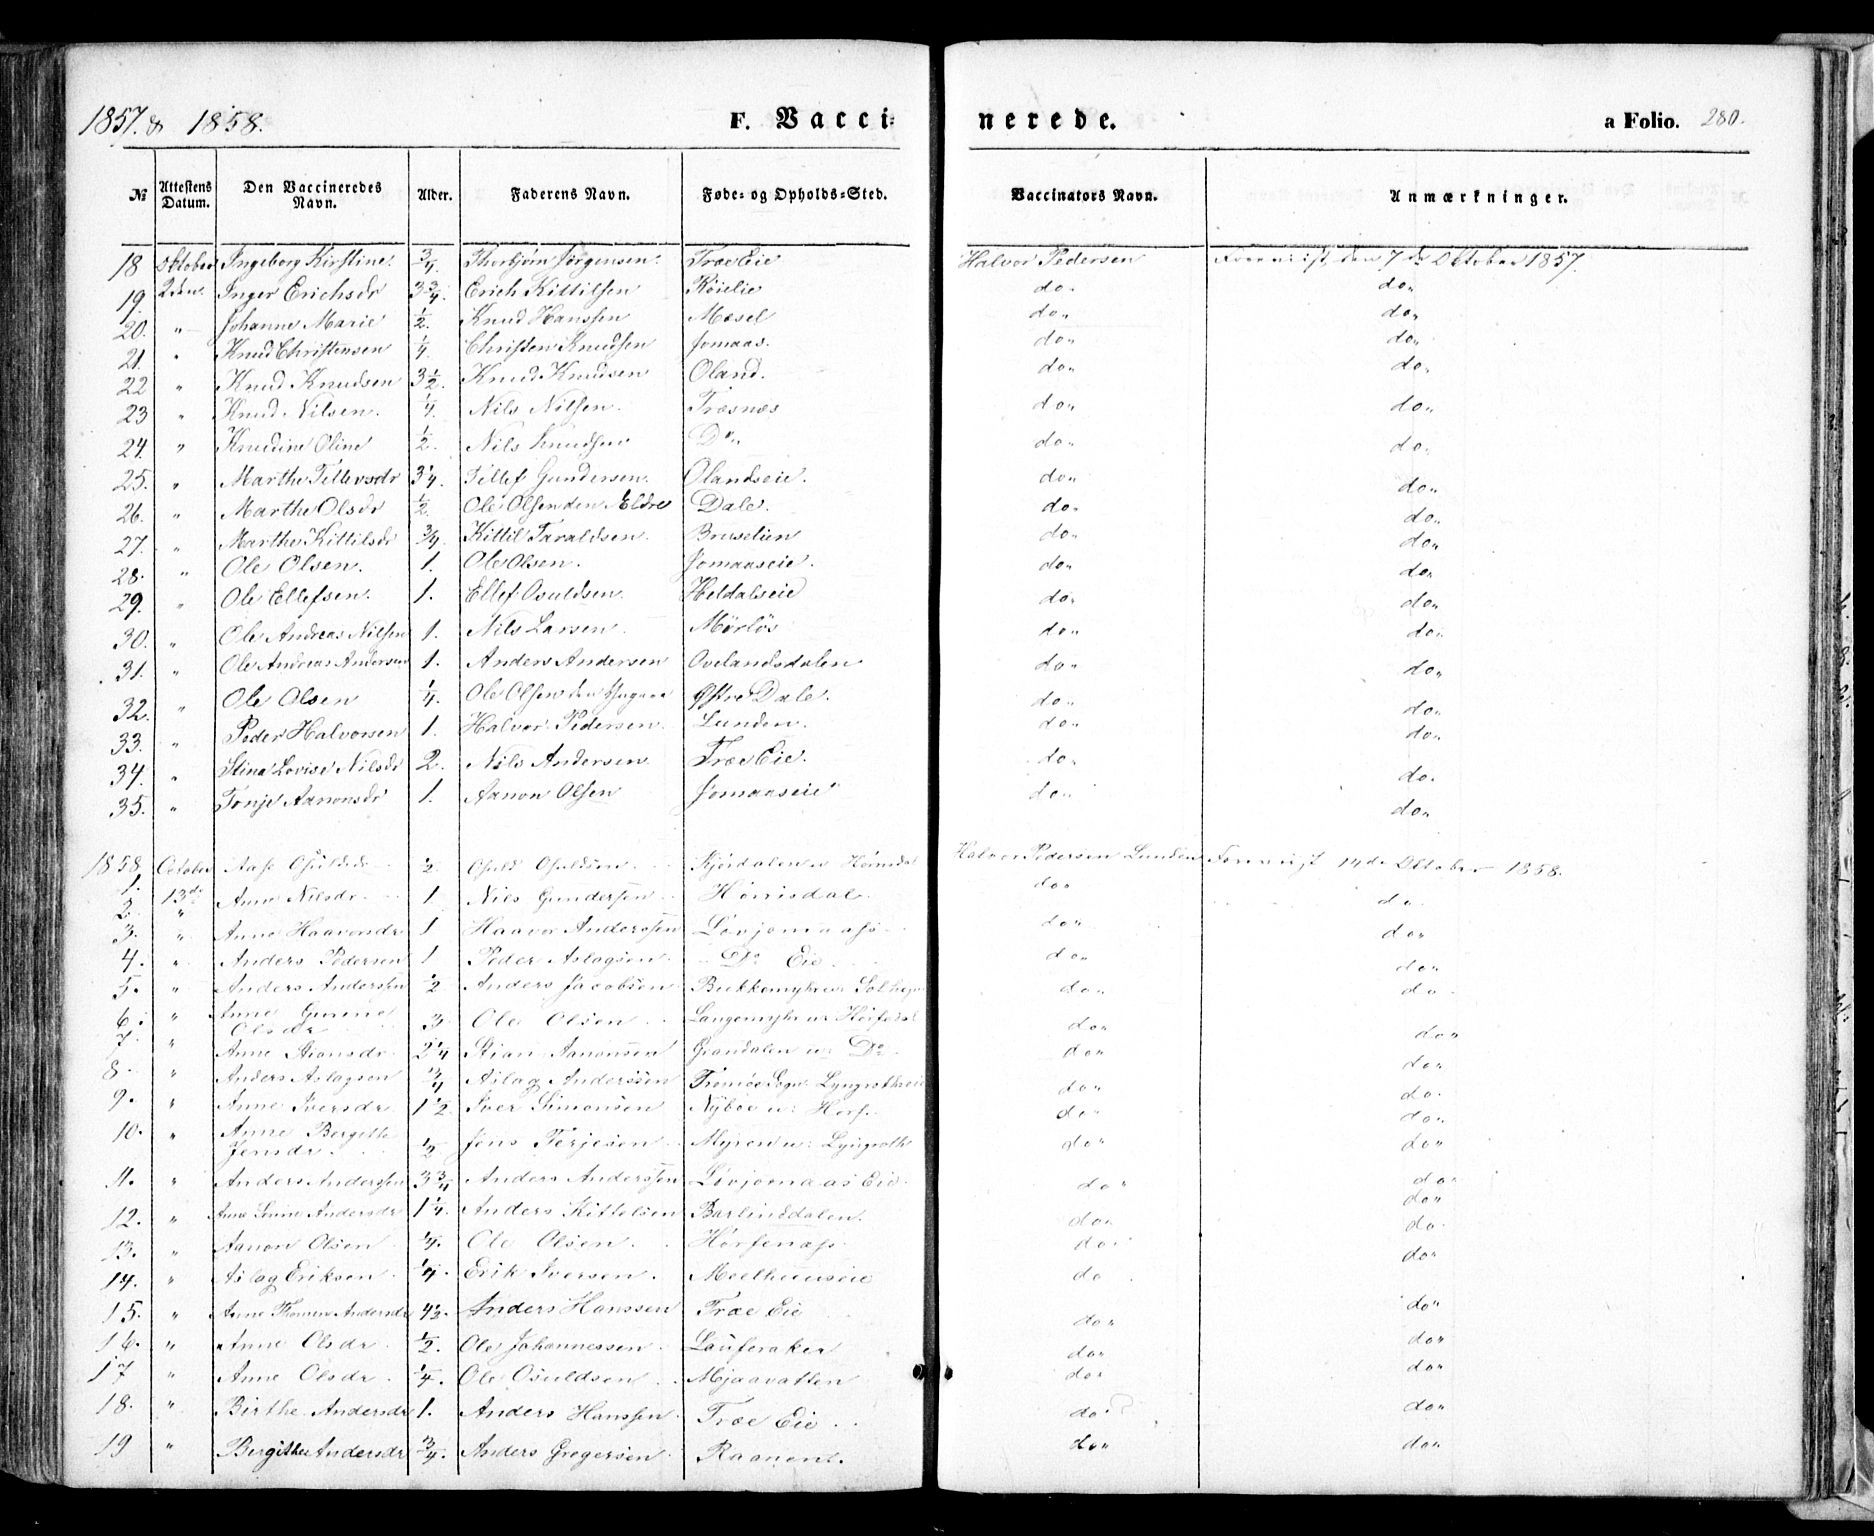 1857. & 1858. F. Vacci= nerede. a Folio. 280.
№ Attestens Datum. Den Vaccineredes Navn. Alder. Faderens Navn. Føde= og Opholds=Sted. Vaccinators Navn. Anmærkninger.
18 October Ingeborg Kirstine. 3/4. Thorbjørn Jørgensen. Træ Eie Halvor Pedersen den 7de October 1857.
19. 2den. Inger Erichsdr 3 3/4. Erich Kittilsen Röielie do„ do„
20. „ Johanne Marie 1/2. Knud Hanssen Mæsel do„ do„
21. „ Knud Christensen 1/4. Christen Knudsen Jomaas. do„ do„
22 „ Knud Knudsen 3 1/2. Knud Knudsen Oland. do„ do„
23 „ Knud Nilsen. 1/4. Nils Nilsen. Træsnæs do„ do„
24. „ Knudine Oline 1/2. Nils Knudsen Do„ do„ do„
25. „ Marthe Tellevsdr 3 1/4. Tellef Gundersen. Olandseie. do„ do„
26. „ Marthe Olsdr 1/2. Ole Olsen den Eldre Dale. do„ do„
27. „ Marthe Kittilsdr 3/4. Kittil Taraldsen. Bruselien do„ do„
28. „ Ole Olsen. 1. Ole Olsen. Jomaaseie. do„ do„
29. „ Ole Ellefsen. 1. Ellef Osuldsen Heldalseie do„ do„
30. „ Ole Andreas Nilsen 1. Nils Larsen Mørløs do„ do„
31. „ Ole Andreas Andersen 1. Anders Andersen Ovelandsdalen do„ do„
32. „ Ole Olsen 1/4. Ole Olsen den Østre Dale. do„ do„
33. „ Peder Halvorsen 1. Halvor Pedersen. Lunden. do„ do„
34. „ Stina Lovise Nilsdr 2. Nils Andersen Træ Eie. do„ do.
35. „ Tonje Aanonsdr 1. Aanon Olsen Jomaaseie do„ do„
1858 October Aase Osuldsdr 1/2 Osuld Osuldsen Halvor Pedersen Lunden 14de October 1858.
1. 13de Anne Nilsdr. 1 Nils Gundersen Hørrisdal do„ do
2 „
3. „ Anne Haavorsdr 1 Haavor Anderssen Lövjomaas do„ do„
4. „ Anders Pedersen 1 Peder Aslagsen. Do Eie do„ do„
5. „ Anders Anderssen 1/2 Anders Jacobsen do„ do
6. „ Anne Gurine
Olsdr 3 Ole Olsen do„ do„
7. „ Anne Stiansdr. 2 1/4 Stian Aanonsen Grandalen u: Do do„ do„
8. „ Anders Aslagsen 3/4 Aslag Anderssen Lyngrotheie do„ do.
9. „ Anne Iversdr. 1 1/2. Iver Simonsen do„ do„
10. „ Anne Bergithe
Jensdr. 1/2 Jens Terjesen Myren u: Lyngroth do„ do„
11. „ Anders Anderssen 3 3/4 Anders Anderssen Lövjomaas Eie. do„ do„
12. „ Andersdr 1 1/4. Anders Kittelsen Barlinddalen. do„ do„
13. „ Aanon Olsen 1/4. Ole Olsen. do„ do.
14. „ Aslag Eriksen 1/4. Erik Iversen. do do„
15. „ Anne Andersdr 4 1/2. Anders Hanssen Træ Eie do„ do„
16. „ Anne Olsdr. 1/2. Ole Johannessen. Lauveraker do„ do„
17 „ Anne Olsdr. 1/4. Ole Osuldsen Mjaavatten do„ do„
18. „ Birthe Andersdr 1. Anders Hanssen. Træ Eie do„ do„
19 „ Bergithe Andersdr 3/4. Anders Gregersen Raanæs. do„ do„